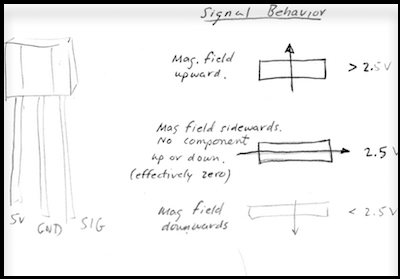 Signal Behavior
Mag. field
upward.
> 2.5V
Mag field sidewards.
No component
up or down.
(effectively zero)
2.5V
Mag field
downwards
< 2.5V
5V
GND
SIG